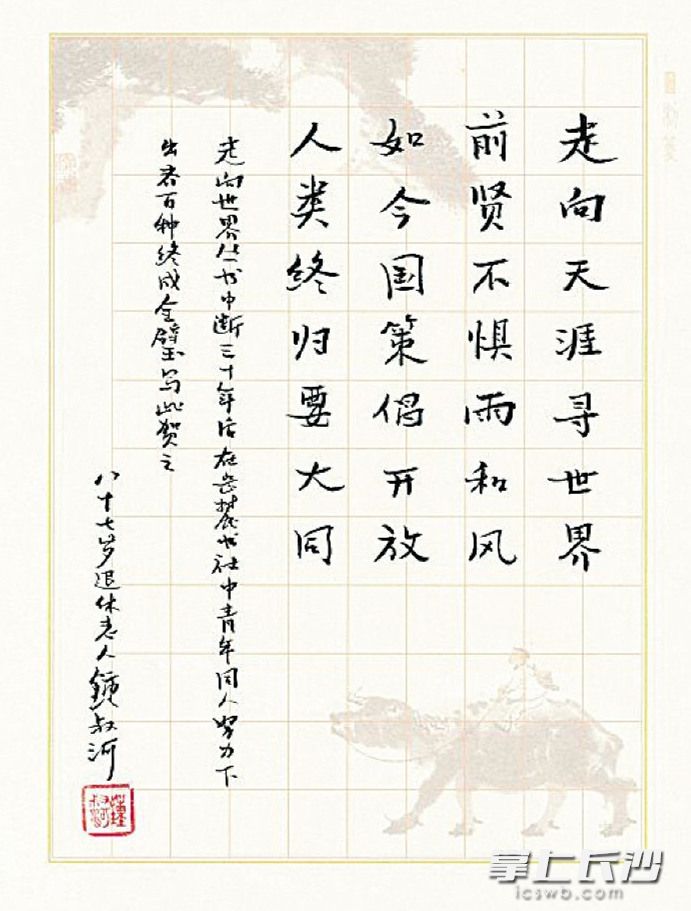 走向天涯寻世界
前贤不惧雨和风
如今国策倡开放
人类终归要大同
走向世界丛书中断三十年后在岳麓书社中青年同人努力下
出齐百种终成全璧写此贺之
八十七岁退休老人锺叔河
掌上长沙
icswb.com